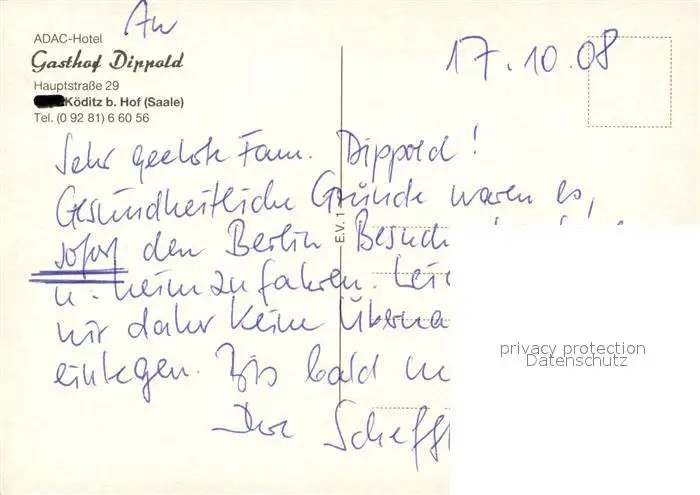 An
ADAC-Hotel
Gasthof Dippold
Hauptstraße 29
Köditz b. Hof (Saale)
Tel. (0 92 81) 6 60 56
17.10.08
Sehr geehrte Fam. Dippold!
Gesundheitliche Gründe waren es,
sofort den Berlin Besuch
u. heimzufahren.
wir daher keine
einlegen. Bis bald
Ihre
E.V. 1
privacy protection
Datenschutz